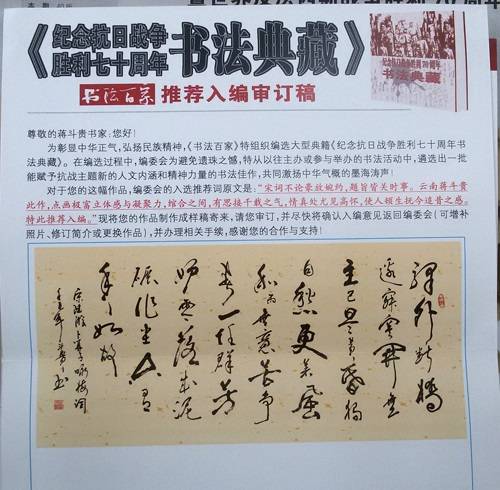 《纪念抗日战争
胜利七十周年 书法典藏》
书法百家 推荐入编审订稿
纪念抗日战争胜利70周年
书法典藏
尊敬的蒋斗贵书家:您好!
为彰显中华正气,弘扬民族精神,《书法百家》特组织编选大型典籍《纪念抗日战争胜利七十周年书
法典藏》。在编选过程中,编委会为避免遗珠之憾,特从以往主办或参与举办的书法活动中,遴选出一批
能赋予抗战主题新的人文内涵和精神力量的书法佳作,共同激扬中华气概的墨海涛声!
对于您的这幅作品,编委会的入选推荐词原文是:“宋词不论豪放婉约,题旨皆关时事。云南蒋斗贵此
作,点画极富立体感与凝聚力,绾合之间,有思接千载之气,情真处尤见高怀,使人顿生抚今追昔之感。
特此推荐入编。”现将您的作品制作成样稿寄来,请您审订,并尽快将确认入编意见返回编委会(可增补
照片、修订简介或更换作品),并办理相关手续,感谢您的合作与支持!
驿外断桥
边寂寞开无
主已是黄昏独
自愁更著风
和雨无意苦争
春一任群芳
妒零落成泥
碾作尘只有
香如故
宋陆游卜算子咏梅词